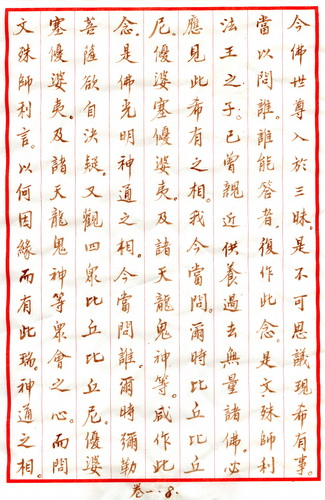 今佛世尊入於三昧。是不可思議現希有事。
當以問誰。誰能答者。復作此念。是文殊師利
法王之子。已曾親近供養過去無量諸佛。必
應見此希有之相。我今當問。爾時比丘比丘
尼。優婆塞優婆夷。及諸天龍鬼神等。咸作此
念。是佛光明神通之相。今當問誰。爾時彌勒
菩薩欲自決疑。又觀四眾比丘比丘尼。優婆
塞優婆夷。及諸天龍鬼神等眾會之心。而問
文殊師利言。以何因緣而有此瑞。神通之相。
卷一.8.